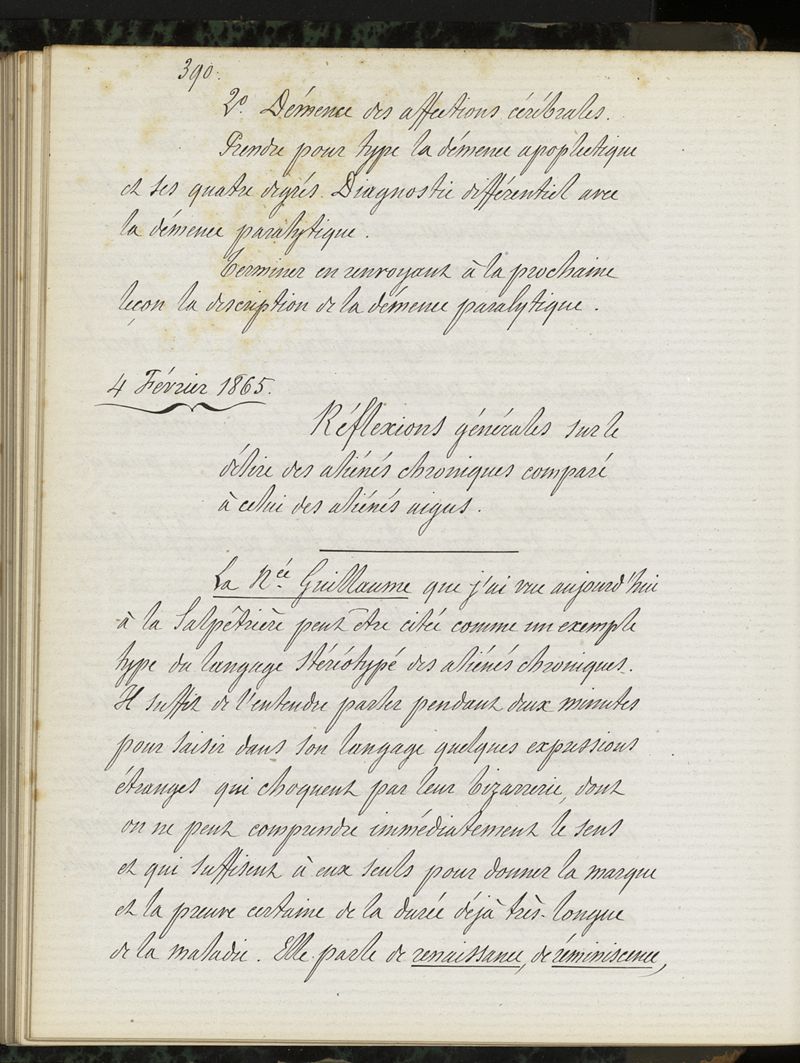 390.
2.° Démence des affections cérébrales.
Prendre pour type la démence apoplectique
et ses quatre degrés. Diagnostic différentiel avec
la démence paralytique.
Terminer en renvoyant à la prochaine
leçon la description de la démence paralytique.
4 Février 1865.
Réflexions générales sur le
délire des aliénés chroniques comparé
à celui des aliénés aigus.
La N.ée Guillaume que j'ai vue aujourd'hui
à la Salpêtrière peut être citée comme un exemple
type du langage stéréotypé des aliénés chroniques.
Il suffit de l'entendre parler pendant deux minutes
pour saisir dans son langage quelques expressions
étranges qui choquent par leur bizarrerie, dont
on ne peut comprendre immédiatement le sens
et qui suffisent à eux seuls pour donner la marque
et la preuve certaine de la durée déjà très-longue
de la maladie. Elle parle de renaissance, de réminiscence,